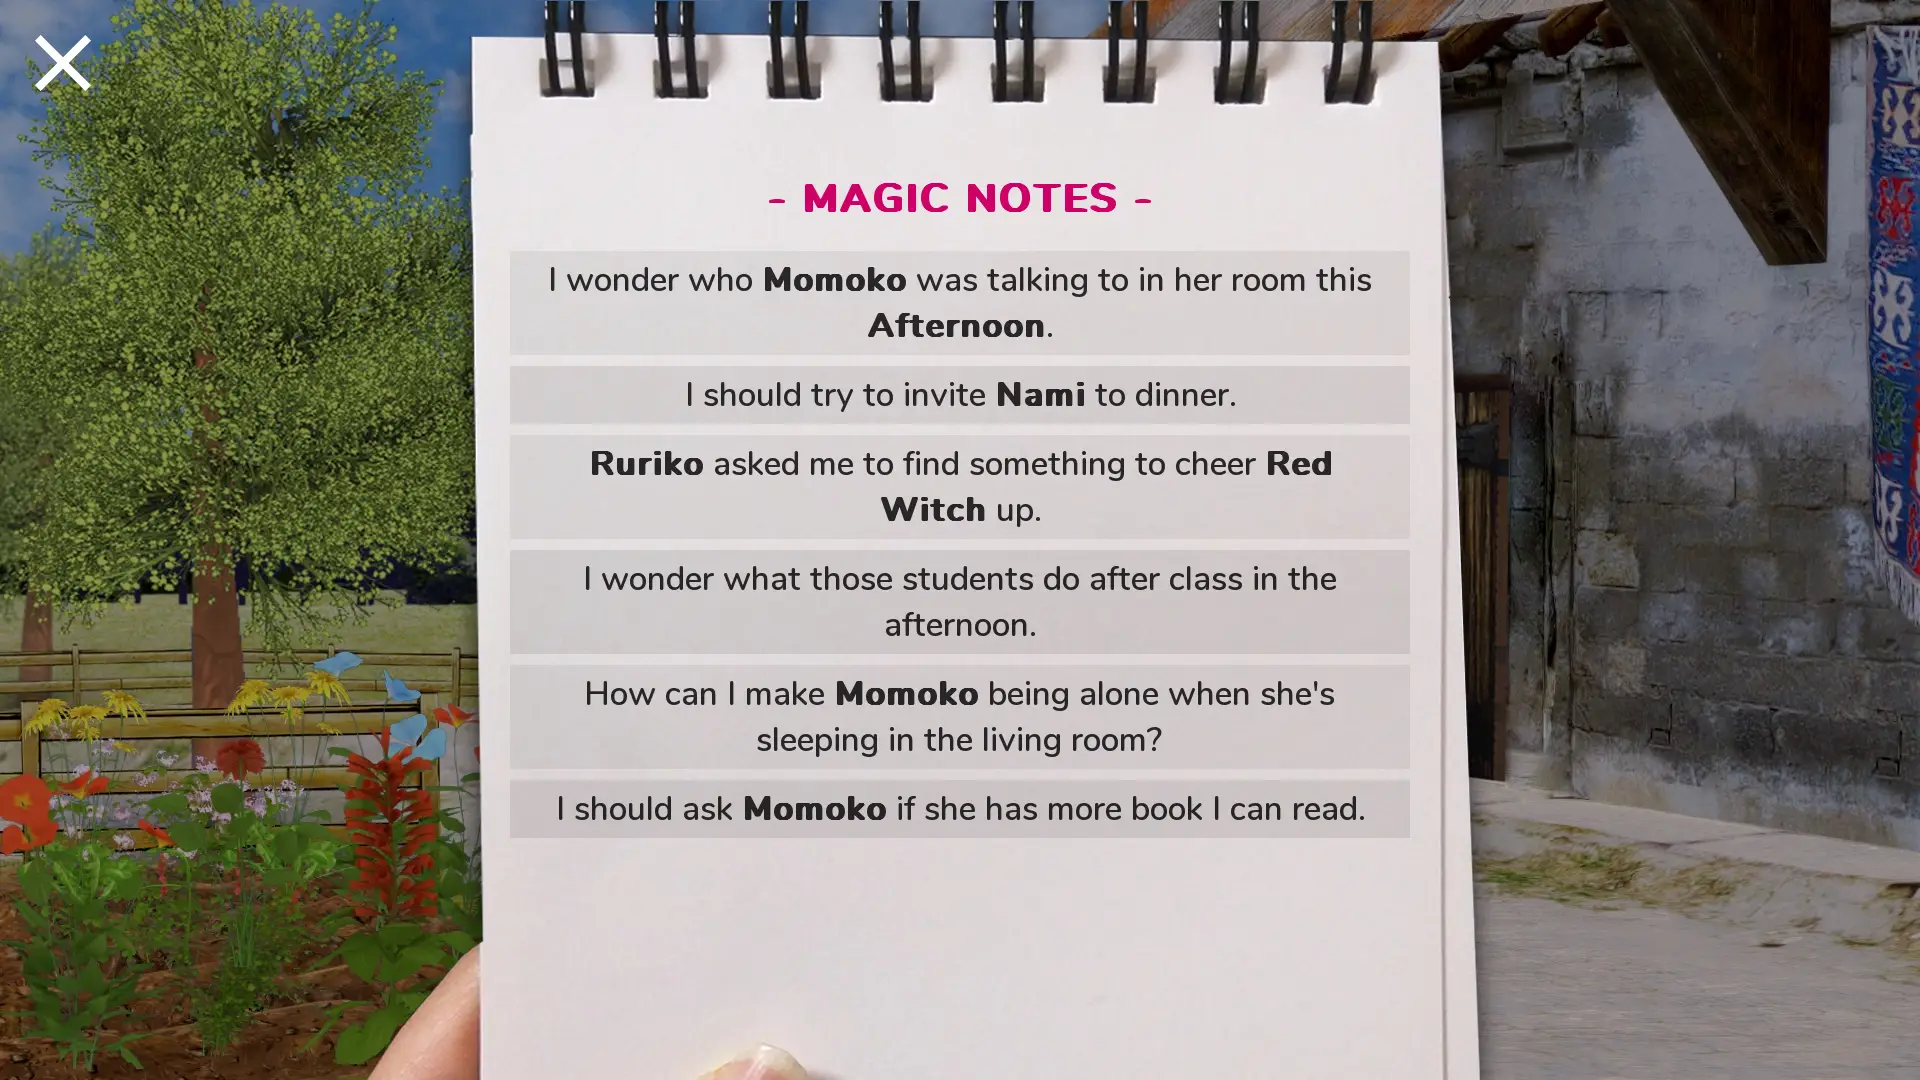 - MAGIC NOTES -
I wonder who Momoko was talking to in her room this
Afternoon.
I should try to invite Nami to dinner.
Ruriko asked me to find something to cheer Red
Witch up.
I wonder what those students do after class in the
afternoon.
How can I make Momoko being alone when she's
sleeping in the living room?
I should ask Momoko if she has more book I can read.